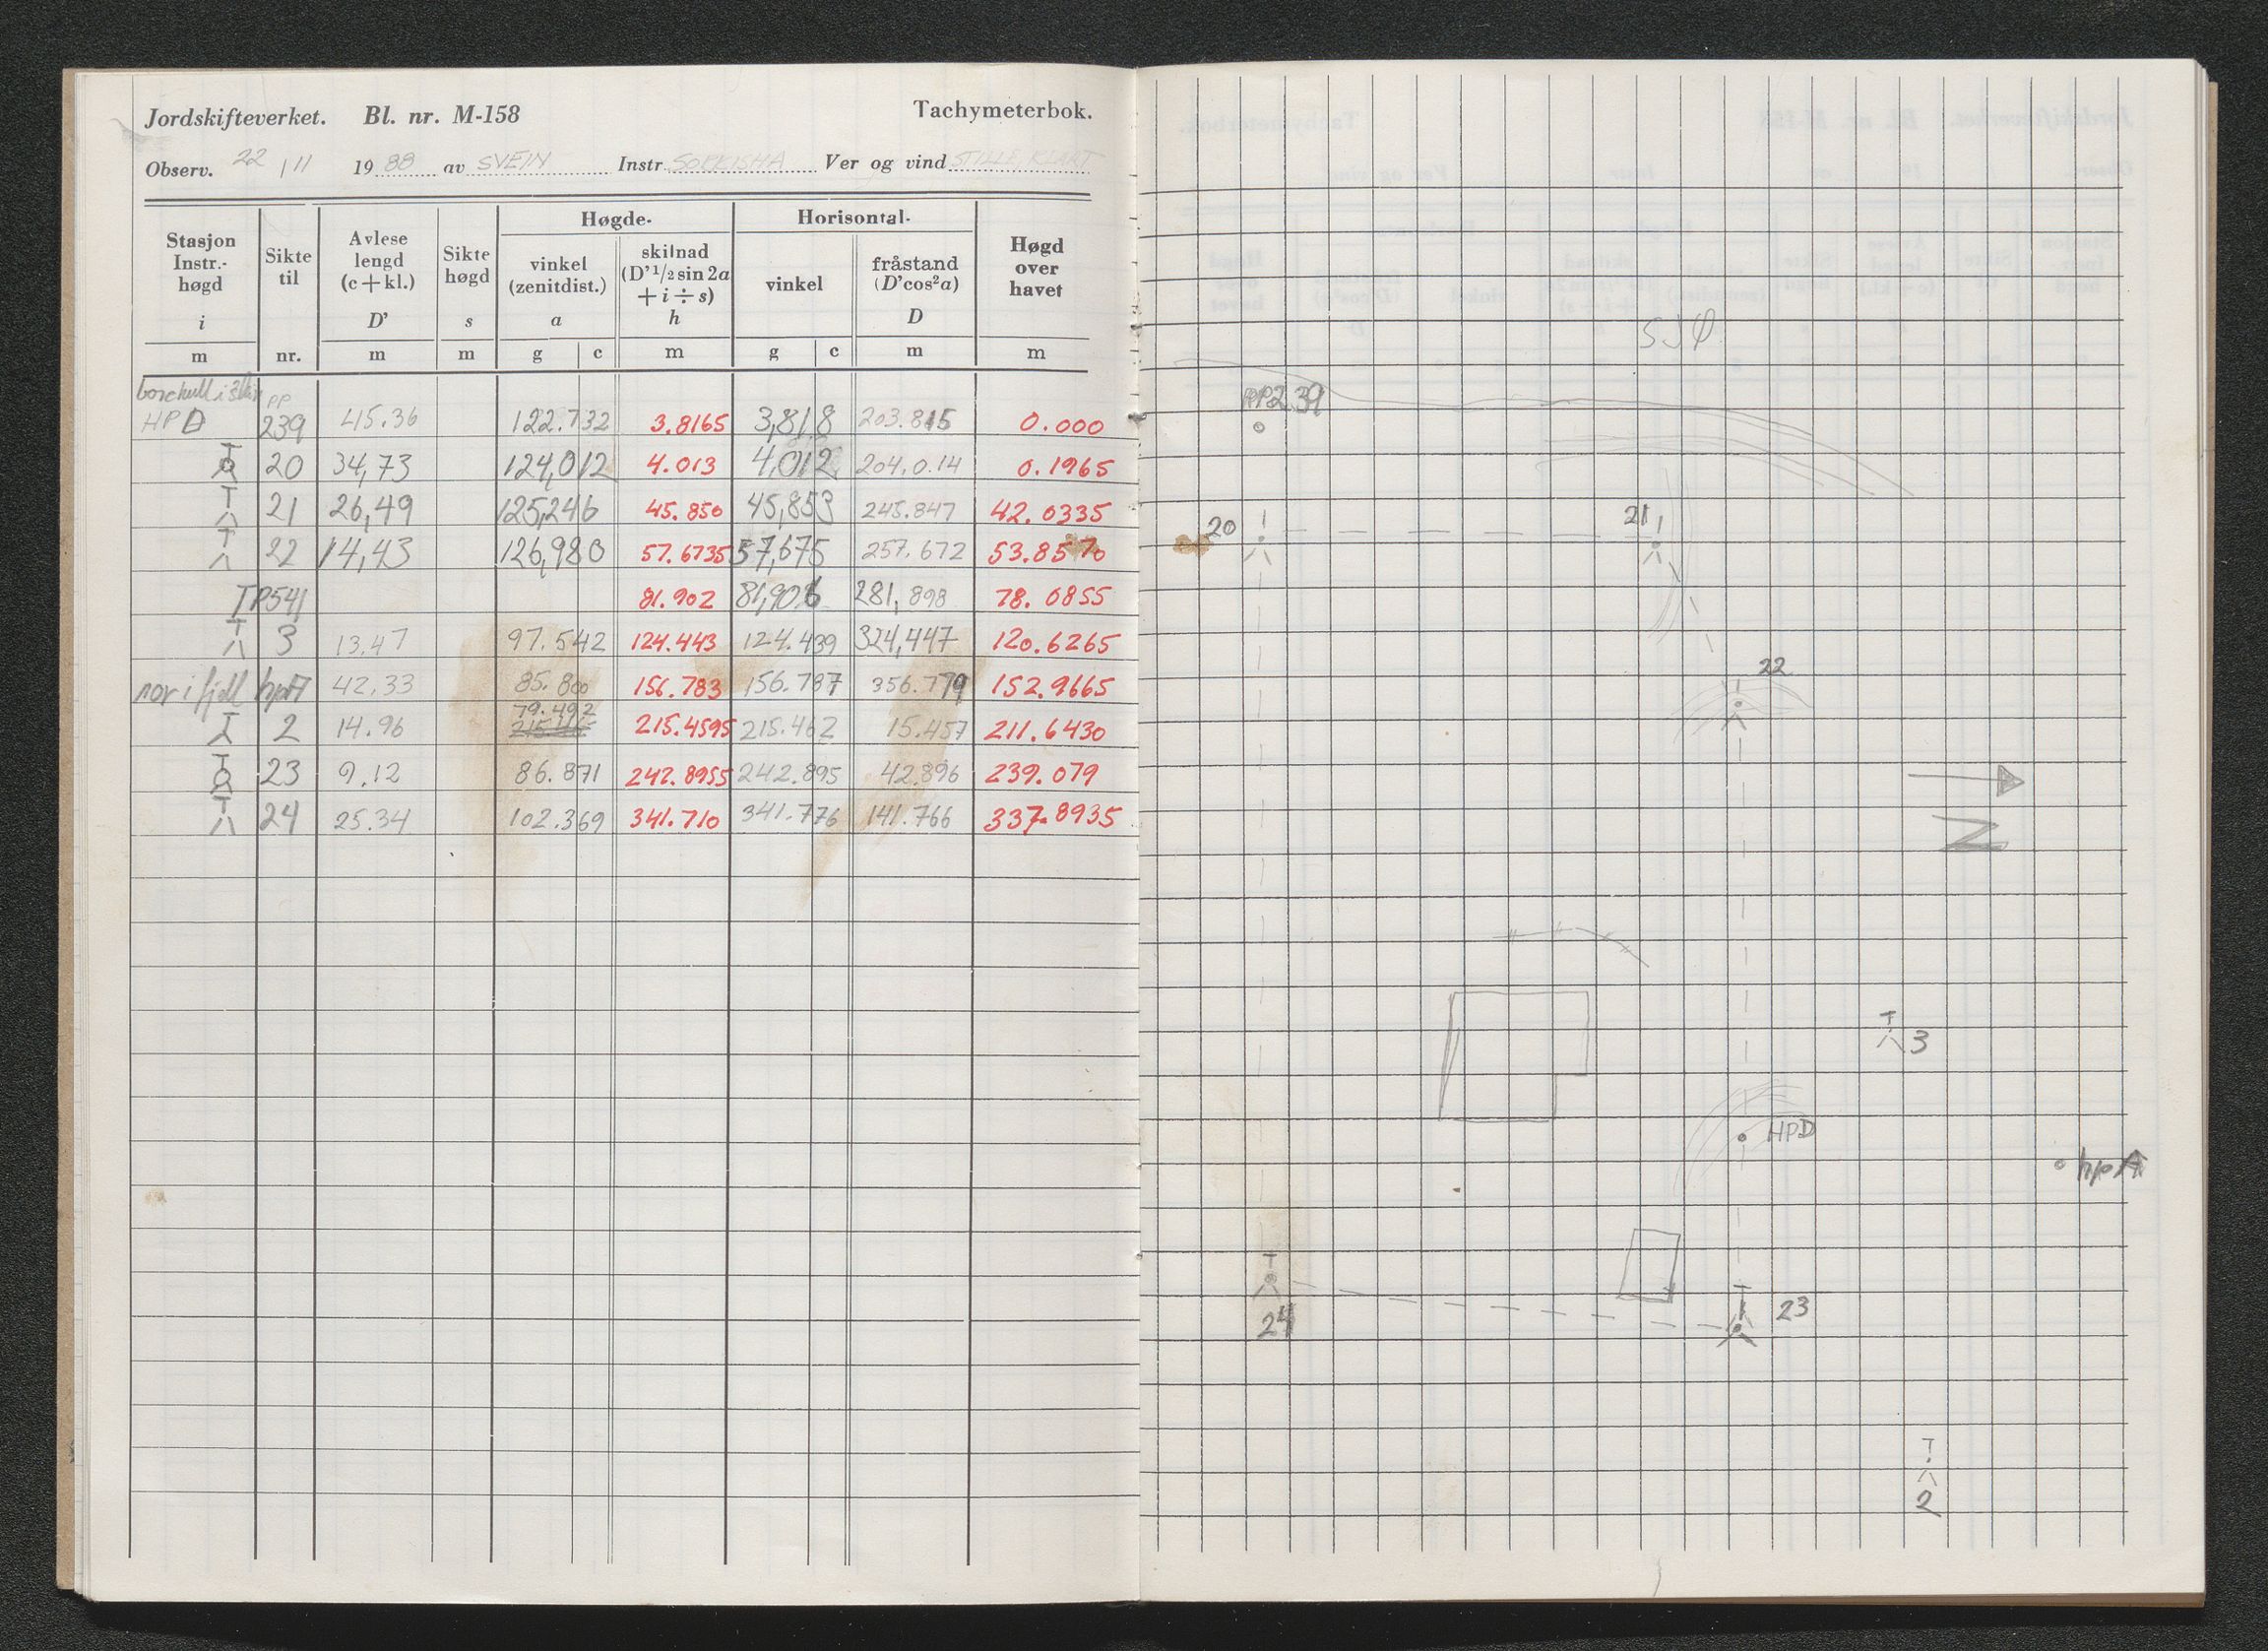 Jordskifteverket. Bl. nr. M-158 Tachymeterbok.
Observ. 22/11 1988 av SVEIN Instr. SOKKISHA Ver og vind STILLE, KLART
Høgde- Horisontal-
Stasjon Instr.- høgd Sikte til Avlese lengd (c+kl.) Sikte høgd vinkel (zenitdist.) skilnad (D'½sin2a +i÷s) vinkel fråstand (D'cos²a) Høgd over havet
i D' s a h D
m nr. m m g c m g c m m
borehull i
pp
HPD 239 45.36 122.732 3.8165 3,818 203.815 0.000
20 34,73 124,012 4.013 4,012 204.0.14 0.1965
21 26,49 125,246 45.850 45,853 245.847 42.0335
22 14,43 126,980 57.6735 57,675 257.672 53.8570
TP541 81.902 81,906 281,898 78.0855
3 13.47 97.542 124.443 124.439 324,447 120.6265
hpA 42.33 85.800 156.783 156.787 356.779 152.9665
79.492
2 14.96 215.4595 215.462 15.457 211.6430
23 9.12 86.871 242.8955 242.895 42.896 239.079
24 25.34 102.369 341.710 341.776 141.766 337.8935
SJØ
PP239
20
21
22
N
3
HPD
hpA
24
23
2